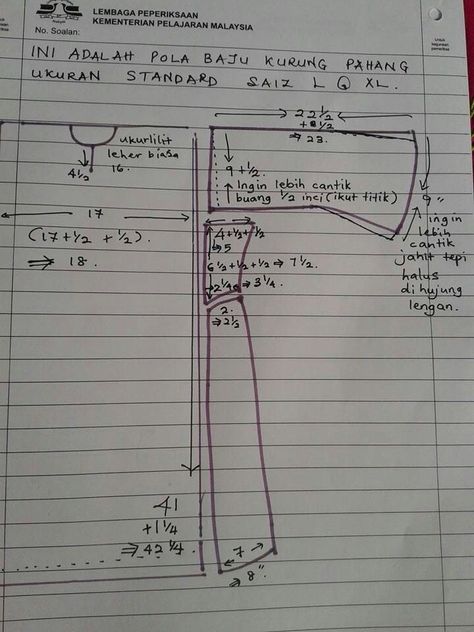 LEMBAGA PEPERIKSAAN
KEMENTERIAN PELAJARAN MALAYSIA
No. Soalan:
INI ADALAH POLA BAJU KURUNG PAHANG
UKURAN STANDARD SAIZ L @ XL.
22 1/2
+ 1/2
⇒ 23.
ukurlilit
leher biasa
16.
4 1/2
17
(17 + 1/2 + 1/2).
⇒ 18.
9 + 1/2.
Ingin lebih cantik
buang 1/2 inci (ikut titik)
9"
Ingin
lebih
cantik
jahit tepi
halus
di hujung
lengan.
4 + 1/2 + 1/2
→ 5
6 1/2 + 1/2 + 1/2 ⇒ 7 1/2
2 1/4 ⇒ 3 1/4
2.
⇒ 2 1/2
41
+ 1 1/4
⇒ 42 1/4.
7
⇒ 8"